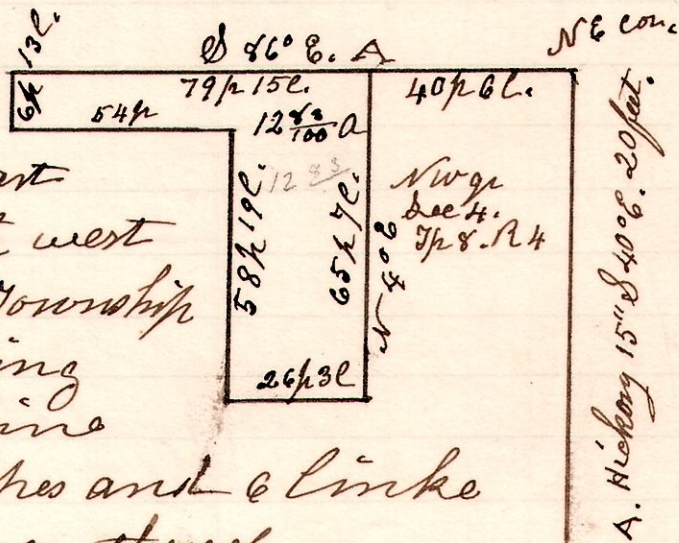 S 86° E. A
NE cor.
6p 13l.
79p 15l.
40p 6l.
54p
12 83/100 a
12 83
58p 19l.
65p 7l.
N 4° E
26p 3l
Nw qr
Sec 4.
Tp 8. R 4
A. Hickory 15" S 40° E. 20 feet.
west
Township
ing
and 6 links